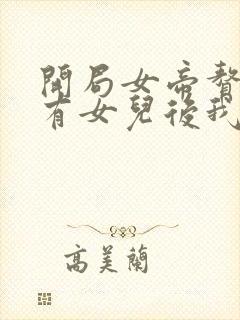 開局女帝贅
有女兒後我
高美蘭